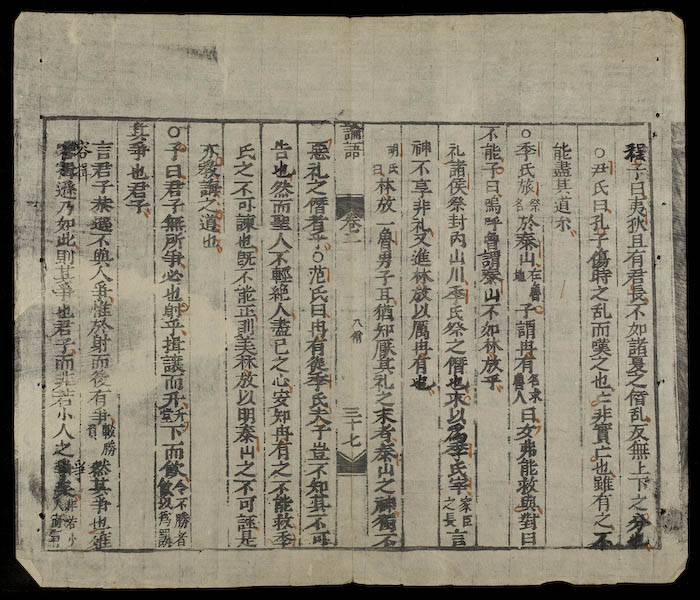 程子曰夷狄且有君長不如諸夏之僭乱反無上下之分也
○尹氏曰孔子傷時之乱而嘆之也亡非實亡也雖有之不
能盡其道尓
○季氏旅祭名於泰山在魯地子謂冉有名求魯人曰女弗能救與對曰
不能子曰嗚呼曾謂泰山不如林放乎
礼諸侯祭封内山川季氏祭之僭也求以爲季氏宰家臣之長言
神不享非礼又進林放以厲冉有也
胡氏曰林放一魯男子耳猶知厭其礼之末者泰山之神獨不
論語 卷二 八佾 三十七
惡礼之僭者乎○范氏曰冉有從季氏夫子豈不知其不可
告也然而聖人不輕絶人盡己之心安知冉有之不能救季
氏之不可諫也既不能正則美林放以明泰山之不可誣是
亦教誨之道也
○子曰君子無所争必也射乎揖讓而升升堂下而飲令不勝者飲以爲罰
其争也君子
言君子恭遜不與人争惟於射而後有争較勝負然其争也雍
容揖遜乃如此則其争也君子而非若小人之争矣非若小